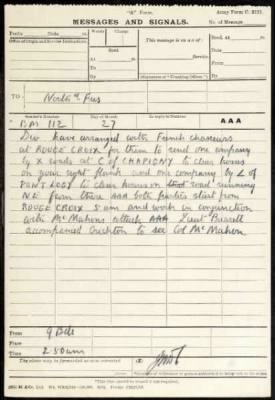 "A" Form.
Army Form C. 2121.
MESSAGES AND SIGNALS.
No. of Message
Prefix
Code
m.
Words
Charge
This message is on a/c of:
Recd. at
m.
Office of Origin and Service Instructions.
Sent
Date
At
m.
Service.
From
To
By
(Signature of "Franking Officer.")
By
TO
North'd Fus
Sender's Number
Day of Month
In reply to Number
AAA
BM 112
27
Div have arranged with French chasseurs
at ROUGE CROIX for them to send one company
by X roads at C of CHAPIGNY to clear houses
on your right flank and one company by L of
PONT LOGY to clear houses on road running
NE from there AAA both parties start from
ROUGE CROIX 5 am and work in conjunction
with McMahons attack AAA Lieut Burrell
accompanied Crichton to see Col McMahon
From
9 Bde
Place
Time
2.50 am
The above may be forwarded as now corrected.
(Z)
Censor.